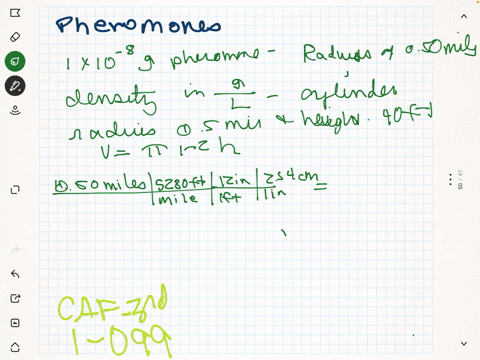 Pheromones
1 x 10^-8 g pheromone - Radius of 0.50 miles
density in g/L - cylinder
radius 0.5 miles & height. 40 ft
V = π r^2 h
0.50 miles | 5280 ft | 12 in | 2.54 cm =
mile | 1 ft | 1 in
CAF-3rd
1-099